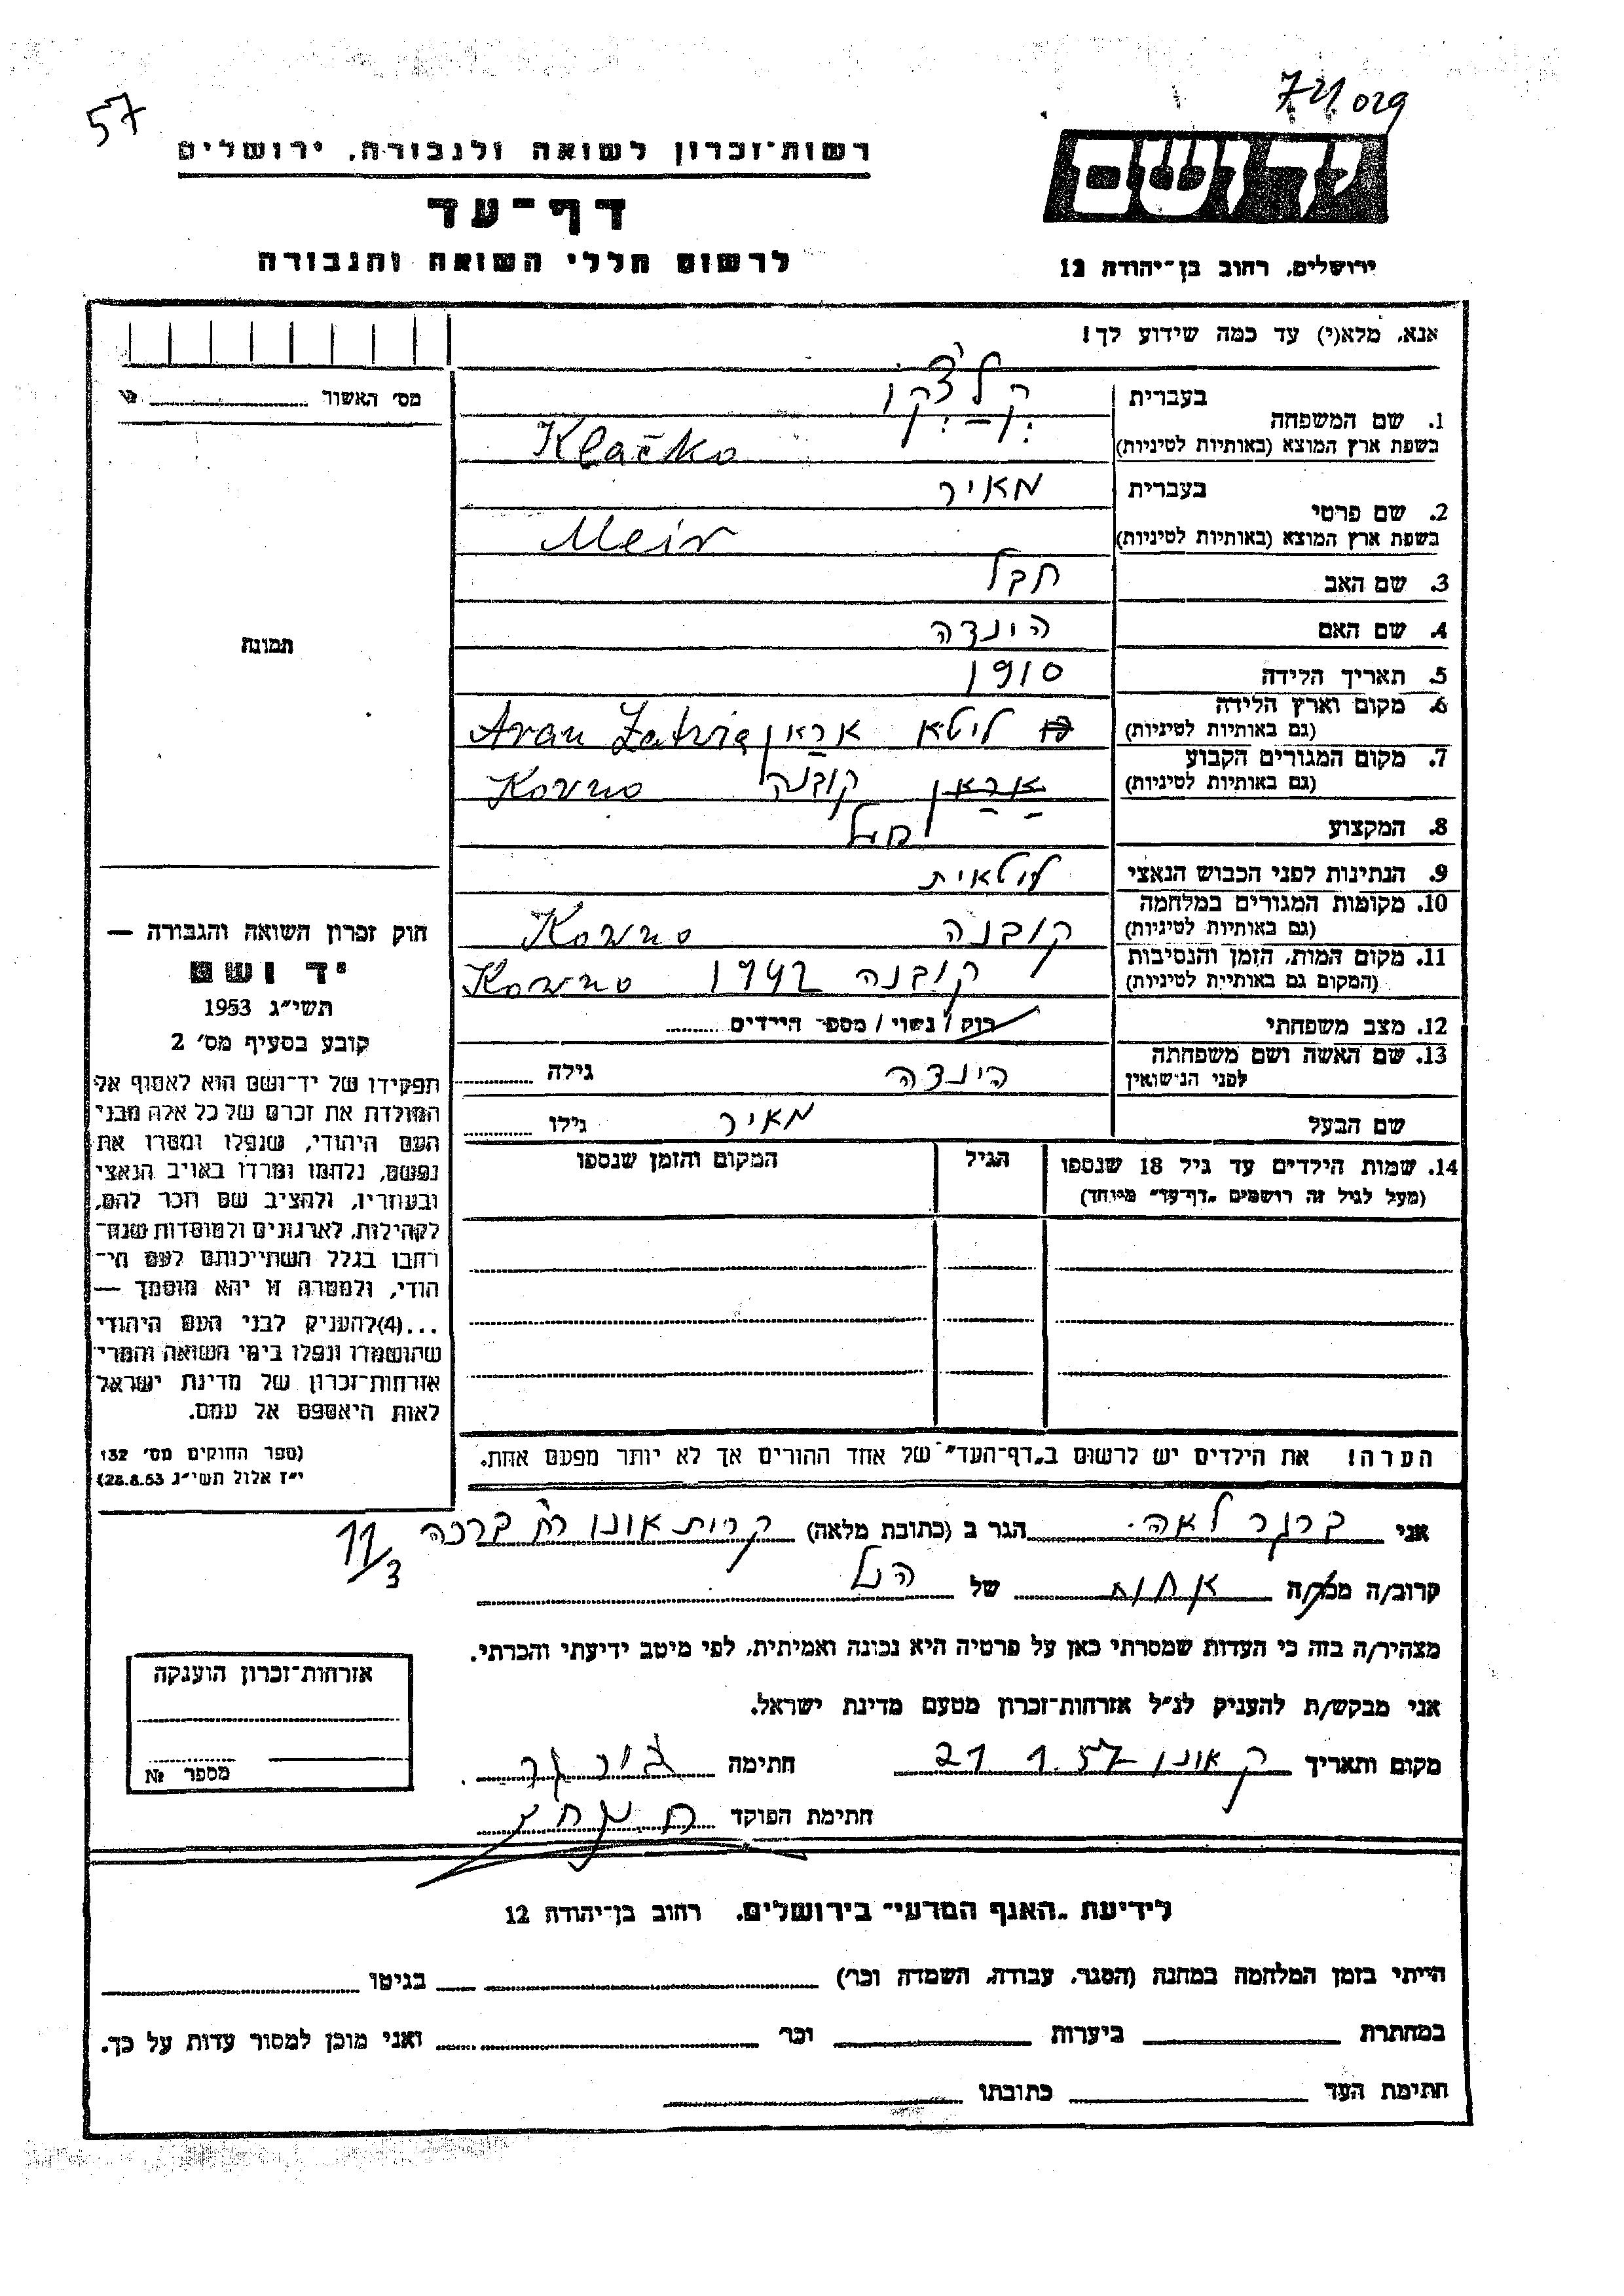 57
רשות־זכרון לשואה ולגבורה, ירושלים
דף־עד
לרשום חללי השואה והגבורה
יד ושם
ירושלים, רחוב בן־יהודה 12
אנא, מלא(י) עד כמה שידוע לך!
מס׳ האשור
1. שם המשפחה
בעברית קלצקו
בשפת ארץ המוצא (באותיות לטיניות) Klačko
2. שם פרטי
בעברית מאיר
בשפת ארץ המוצא (באותיות לטיניות) Meir
3. שם האב
4. שם האם הינדה
5. תאריך הלידה 1910
6. מקום וארץ הלידה
(גם באותיות לטיניות) ליטא אראן Aran
7. מקום המגורים הקבוע
(גם באותיות לטיניות) אראן קובנה Kovno
8. המקצוע
9. הנתינות לפני הכבוש הנאצי ליטאית
10. מקומות המגורים במלחמה
(גם באותיות לטיניות) קובנה Kovno
11. מקום המות, הזמן והנסיבות
(המקום גם באותיית לטיניות) קובנה 1942 Kovno
12. מצב משפחתי רוק / נשוי / מספר הילדים
13. שם האשה ושם משפחתה
לפני הנישואין הינדה גילה
שם הבעל מאיר גילו
14. שמות הילדים עד גיל 18 שנספו
(מעל לגיל זה רושמים „דף־עד״ מיוחד)
הגיל
המקום והזמן שנספו
הערה! את הילדים יש לרשום ב„דף־העד״ של אחד ההורים אך לא יותר מפעם אחת.
תמונה
חוק זכרון השואה והגבורה —
יד ושם
תשי״ג 1953
קובע בסעיף מס׳ 2
תפקידו של יד־ושם הוא לאסוף אל
המולדת את זכרם של כל אלה מבני
העם היהודי, שנפלו ומסרו את
נפשם, נלחמו ומרדו באויב הנאצי
ובעוזריו, ולהציב שם וזכר להם,
לקהילות, לארגונים ולמוסדות שנח־
רבו בגלל השתייכותם לעם הי־
הודי, ולמטרה זו יהא מוסמך —
...(4)להעניק לבני העם היהודי
שהושמדו ונפלו בימי השואה והמרי
אזרחות־זכרון של מדינת ישראל
לאות היאספם אל עמם.
(ספר החוקים מס׳ 132
י״ז אלול תשי״ג 28.8.53)
אני ברגר לאה הגר ב (כתובת מלאה) קרית אונו רח ברכה
11/3
קרוב/ה מכר/ה אחות של הנל
מצהיר/ה בזה כי העדות שמסרתי כאן על פרטיה היא נכונה ואמיתית, לפי מיטב ידיעתי והכרתי.
אני מבקש/ת להעניק לנ״ל אזרחות־זכרון מטעם מדינת ישראל.
מקום ותאריך ק אונו 21 1.57 חתימה
חתימת הפוקד
אזרחות־זכרון הוענקה
מספר №
לידיעת „האגף המדעי״ בירושלים, רחוב בן־יהודה 12
הייתי בזמן המלחמה במחנה (הסגר, עבודה, השמדה וכר) בגיטו
במחתרת ביערות וכר ואני מוכן למסור עדות על כך.
חתימת העד כתובתו